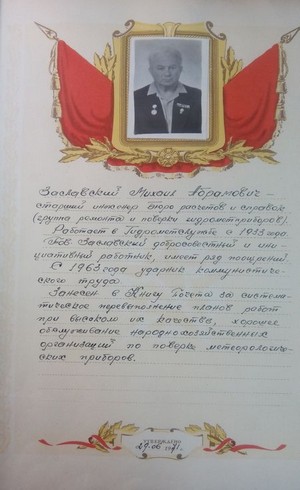 Заславский Михаил Абрамович-
старший инженер бюро расчетов и справок
(группа ремонта и поверки гидрометприборов).
Работает в Гидрометслужбе с 1933 года.
Тов. Заславский добросовестный и ини-
циативный работник, имеет ряд поощрений.
С 1963 года ударник коммунистиче-
ского труда.
Занесен в Книгу Почета за система-
тическое перевыполнение планов работ
при высоком их качестве, хорошее
обслуживание народнохозяйственных
организаций по поверке метеорологиче-
ских приборов.
УТВЕРЖДЕНО
29.06 1971.